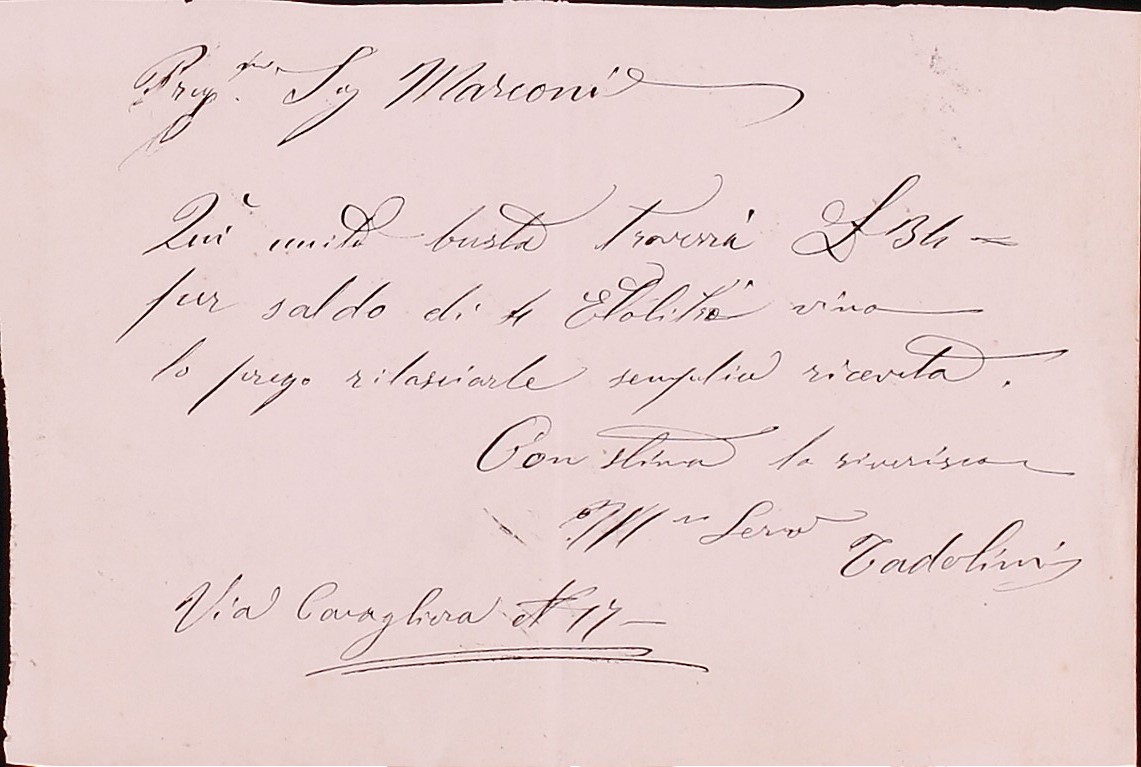 Preg.mo Sig Marconi
Qui unita busta troverrà £ 34 –
per saldo di 4 Etolitri vino
lo prego rilasciarle semplice ricevuta.
Con stima la riverisco
Servo
Tadolini
Via Cavagliera N 17 –